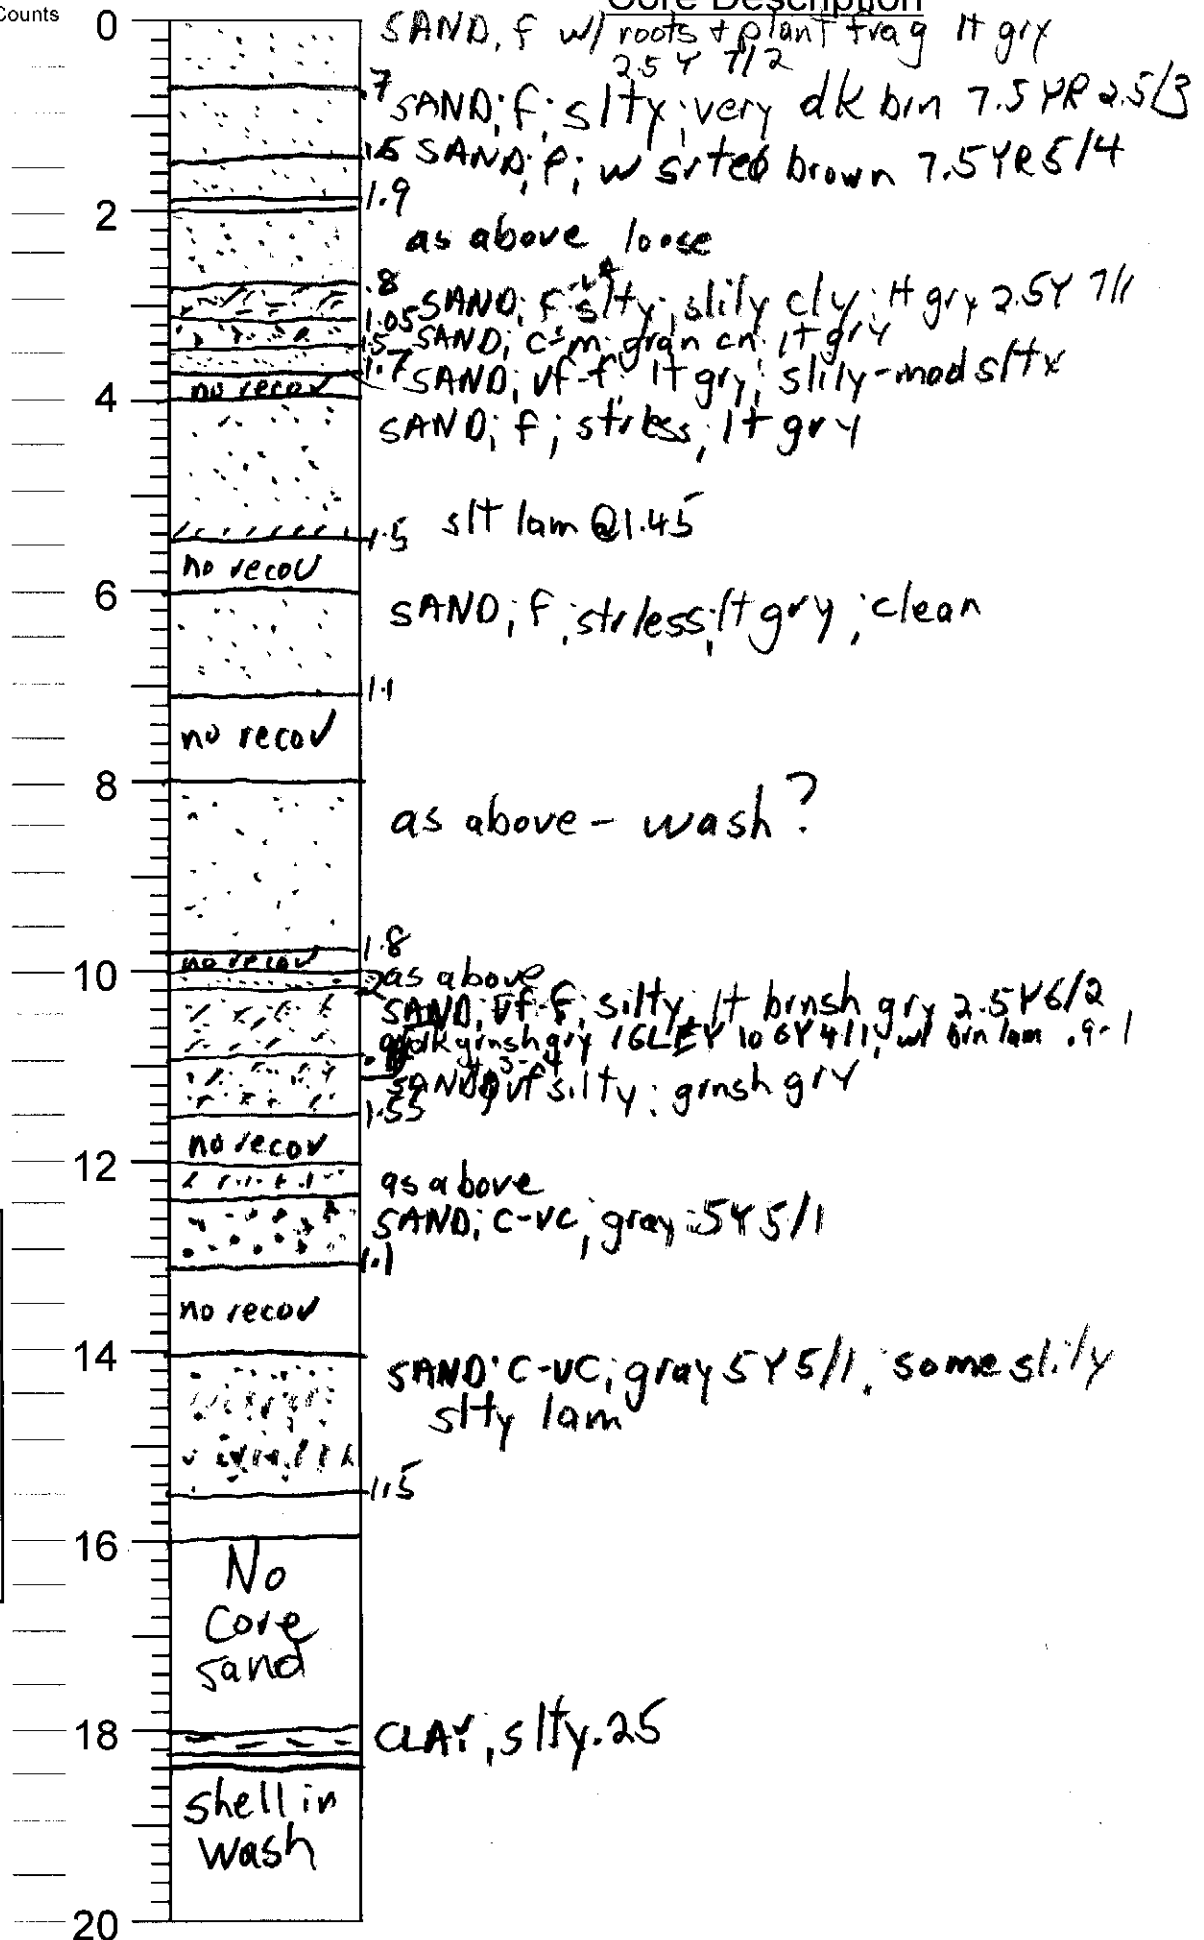 Counts
Core Description
0
SAND, f w/ roots + plant frag lt gry
2.5 Y 7/2
.7
SAND; f; slty; very dk brn 7.5 YR 2.5/3
1.5 SAND; f; w srted brown 7.5YR5/4
1.9
2
as above loose
.8
SAND; f slty; slily cly; lt gry 2.5Y 7/1
1.05
SAND; c-m; gran cn; lt gry
1.5
1.7 SAND; vf-f; lt gry; slily-mod slty
no recov
4
SAND; f; strless; lt gry
1.5 slt lam @1.45
no recov
6
SAND; f; strless; lt gry; clean
1.1
no recov
8
as above - wash?
1.8
no recov
10
as above
SAND; vf-f; silty; lt brnsh gry 2.5Y6/2
dk grnsh gry 1GLEY 10GY 4/1; w/ brn lam .9-1
SAND; vf silty; grnsh gry
1.55
no recov
12
as above
SAND; C-VC; gray 5Y5/1
1.1
no recov
14
SAND; C-VC; gray 5Y5/1; some slily
slty lam
1.5
16
No
Core
sand
18
CLAY; slty .25
shell in
wash
20